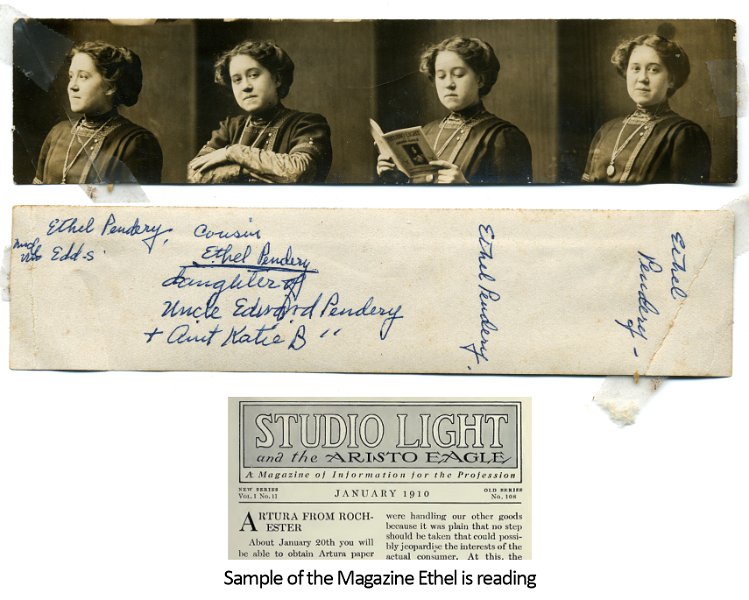 LIGHT
Ethel Pendery,
Edd-s
Cousin
Ethel Pendery
daughter of
Uncle Edward Pendery
+ Aint Katie B "
Ethel Pendery.
Ethel
Pendery
of -
STUDIO LIGHT
and the ARISTO EAGLE
A Magazine of Information for the Profession
NEW SERIES
VOL. 1 No. 11
JANUARY 1910
OLD SERIES
No. 108
ARTURA FROM ROCH-
ESTER
About January 20th you will
be able to obtain Artura paper
were handling our other goods
because it was plain that no step
should be taken that could possi-
bly jeopardise the interests of the
actual consumer. At this, the
Sample of the Magazine Ethel is reading